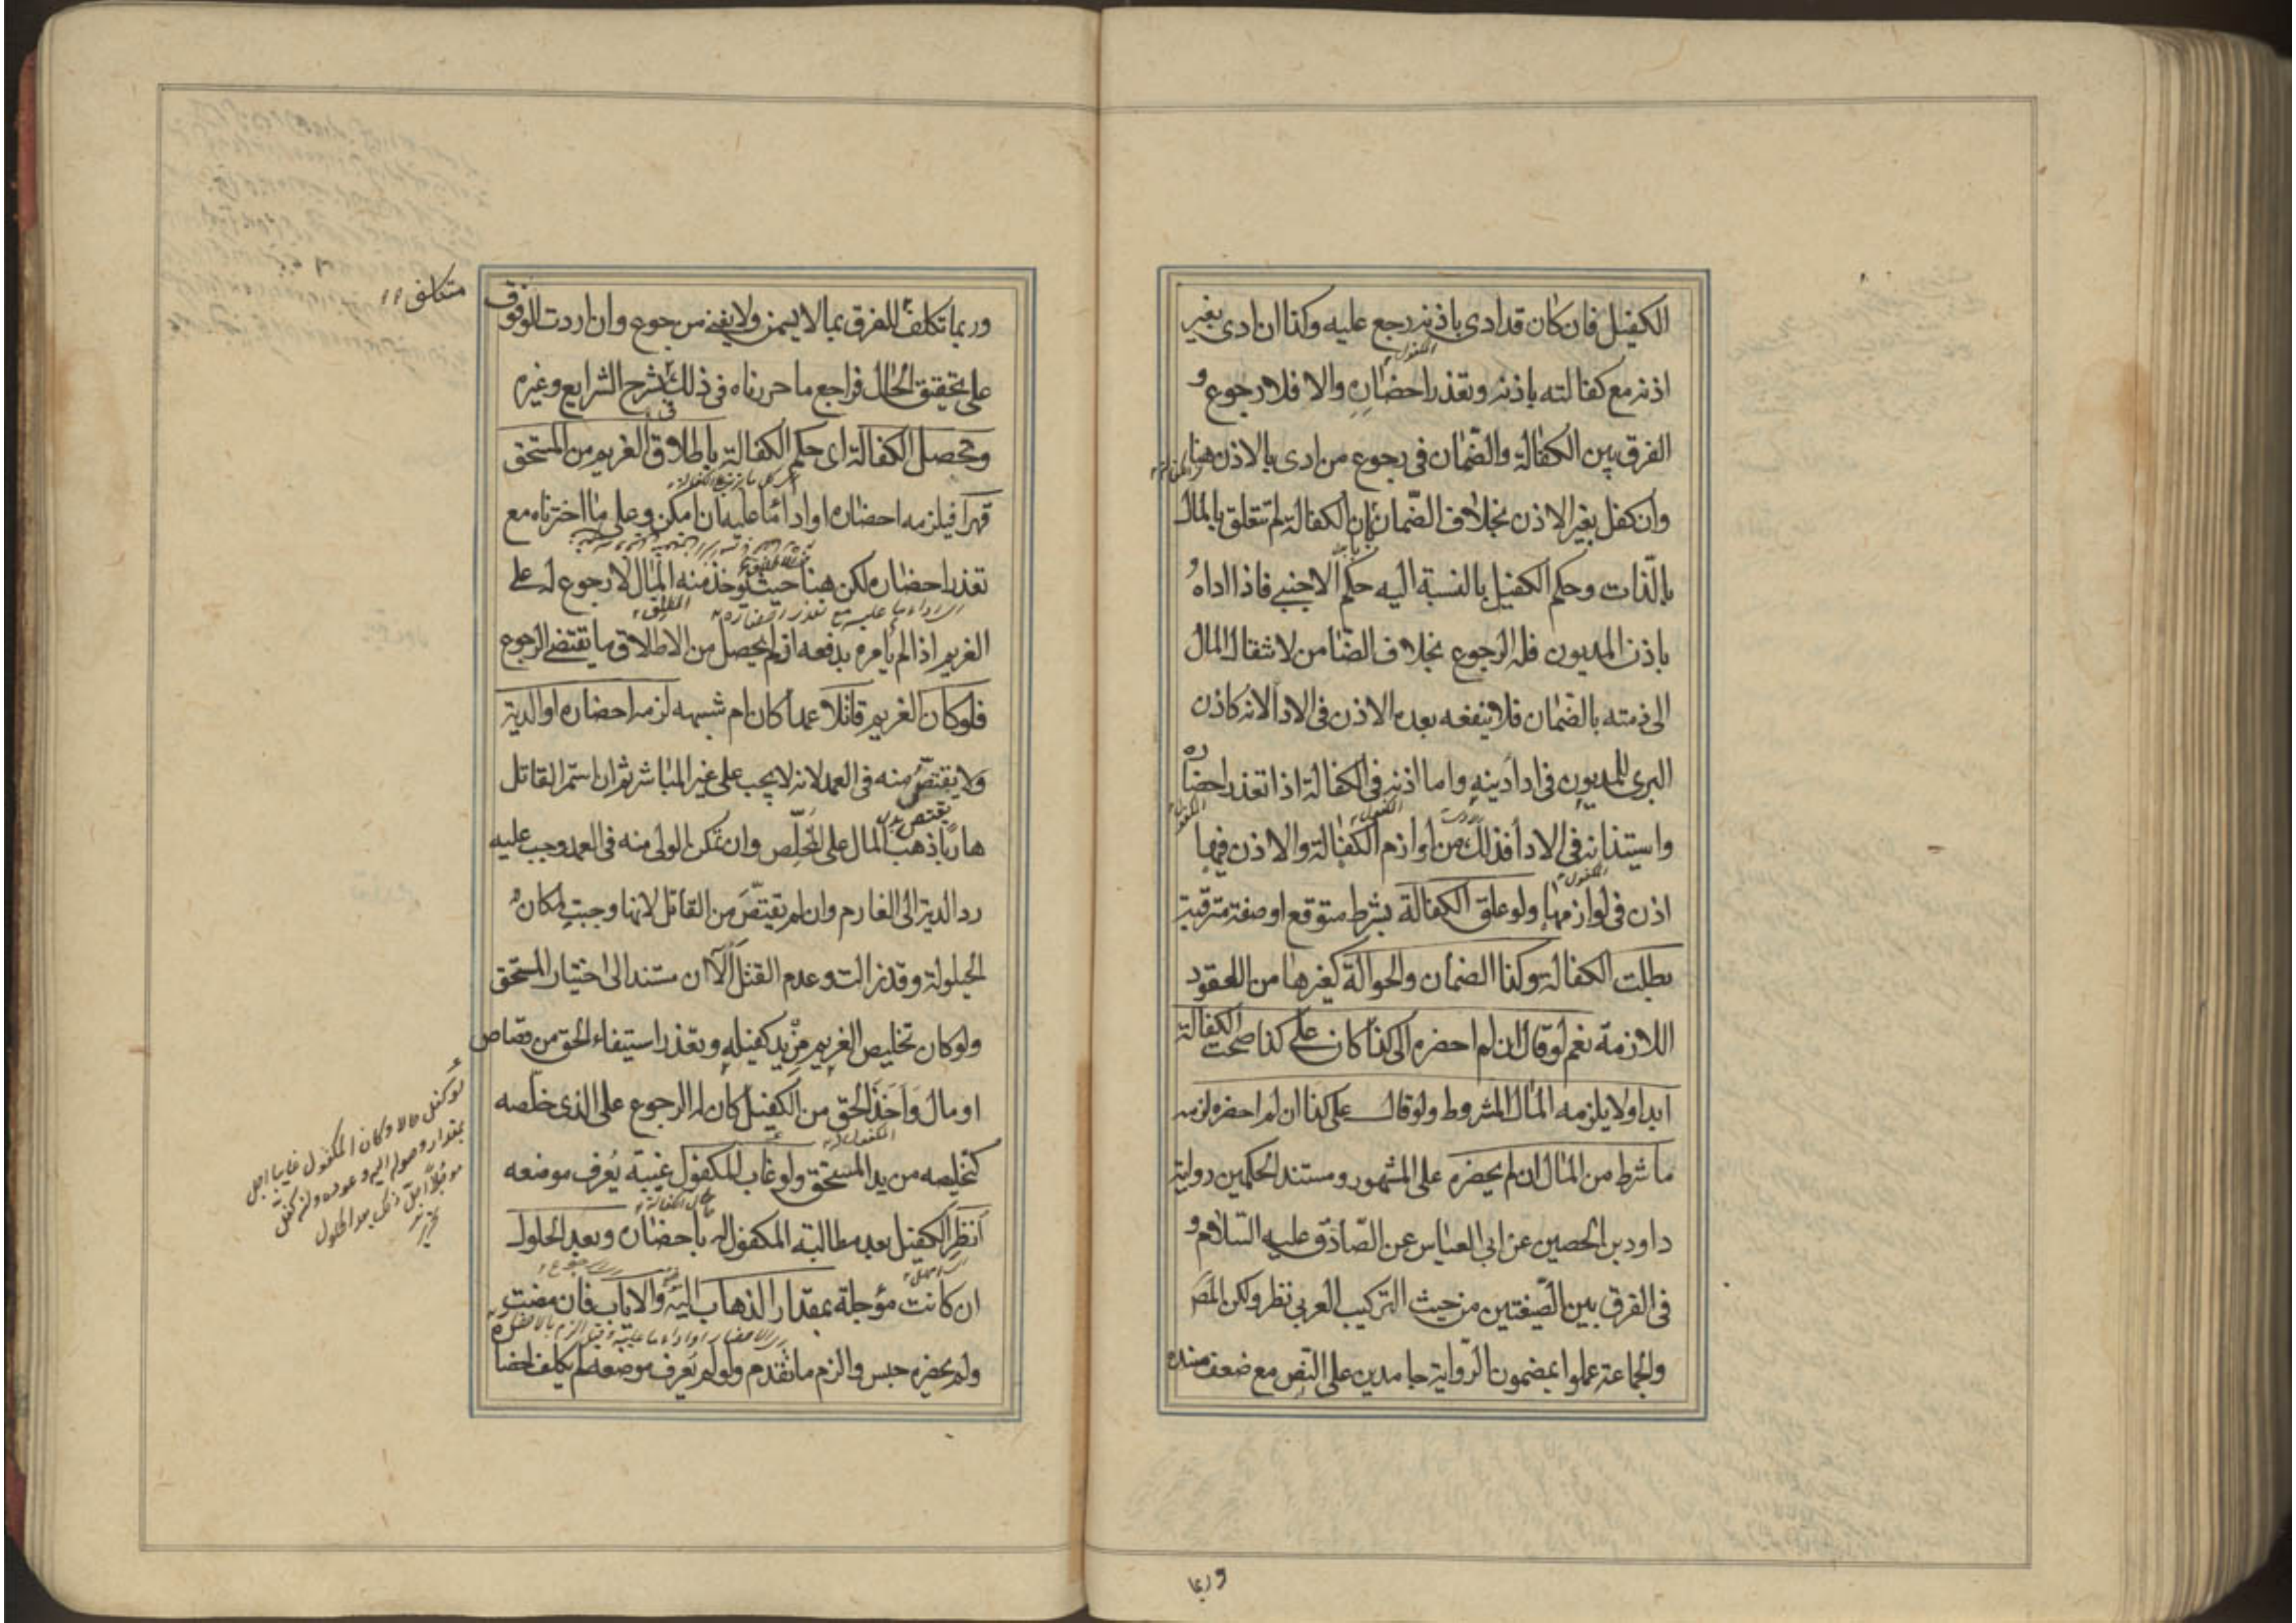 الكفيل فان كان قد ادى باذنه رجع عليه وكذا ان ادى بغير
اذنه مع كفالته باذنه وتعذر احضاره والا فلا رجوع و
الفرق بين الكفالة والضمان في رجوع من ادى بالاذن هنا
وان كفل بغير الاذن بخلاف الضمان ان الكفالة لم تتعلق بالمال
بالذات وحكم الكفيل بالنسبة اليه حكم الاجنبي فاذا اداه
باذن المديون فله الرجوع بخلاف الضامن لانتقال المال
الى ذمته بالضمان فلا ينفعه بعده الاذن في الادا لانه كاذن
البرى للمديون في ادا دينه واما اذنه في الكفالة اذا تعذر احضاره
واستيذانه في الادا فذلك من لوازم الكفالة والاذن فيها
اذن في لوازمها ولو علق الكفالة بشرط متوقع او صفة مترقبة
بطلت الكفالة وكذا الضمان والحوالة كغيرها من العقود
اللازمة نعم لو قال ان لم احضره الى كذا كان على كذا صحت الكفالة
ابدا ولا يلزمه المال المشروط ولو قال على كذا ان لم احضره لزمه
ما شرط من المال ان لم يحضره على المشهور ومستند الحكمين رواية
داود بن الحصين عن ابي العباس عن الصادق عليه السلام و
في الفرق بين الصيغتين من حيث التركيب العربي نظر ولكن المص
والجماعة عملوا بمضمون الرواية جامدين على النص مع ضعف سنده
وربما
وربما تكلف للفرق بما لا يسمن ولا يغني من جوع وان اردت الوقوف
متكلف
على تحقيق الحال فراجع ما حررناه في ذلك بشرح الشرايع وغيره
وتحصل الكفالة اى حكم الكفالة باطلاق الغريم من المستحق
قهرا فيلزمه احضاره او اداء ما عليه ان امكن وعلى ما اخترناه مع
تعذر احضاره لكن هنا حيث يؤخذ منه المال لا رجوع له على
الغريم اذا لم يأمره بدفعه اذ لم يحصل من الاطلاق ما يقتضى الرجوع
فلو كان الغريم قاتلا عمدا كان ام شبهه لزمه احضاره او الدية
ولا يقتص منه في العمد لانه لا يجب على غير المباشر ثم ان استمر القاتل
هاربا ذهب المال على المخلص وان تمكن الولى منه في العمد وجب عليه
رد الدية الى الغارم وان لم يقتص من القاتل لانها وجبت لمكان
الحيلولة وقد زالت وعدم القتل الآن مستند الى اختيار المستحق
ولو كان تخليص الغريم من يد كفيله وتعذر استيفاء الحق من قصاص
او مال واخذ الحق من الكفيل كان له الرجوع على الذى خلصه
كتخليصه من يد المستحق ولو غاب المكفول غيبة يعرف موضعه
انظر الكفيل بعد مطالبته المكفول له باحضاره وبعد الحلول
ان كانت مؤجلة بمقدار الذهاب اليه والاياب فان مضت
ولم يحضره حبس والزم ما تقدم ولو لم يعرف موضعه لم يكلف احضاره
لو كفل حالا وكان المكفول غايبا اجل
بمقدار وصوله اليه وعوده ولو كفل
مؤجلا اجل ذلك بعد الحلول
تحرير